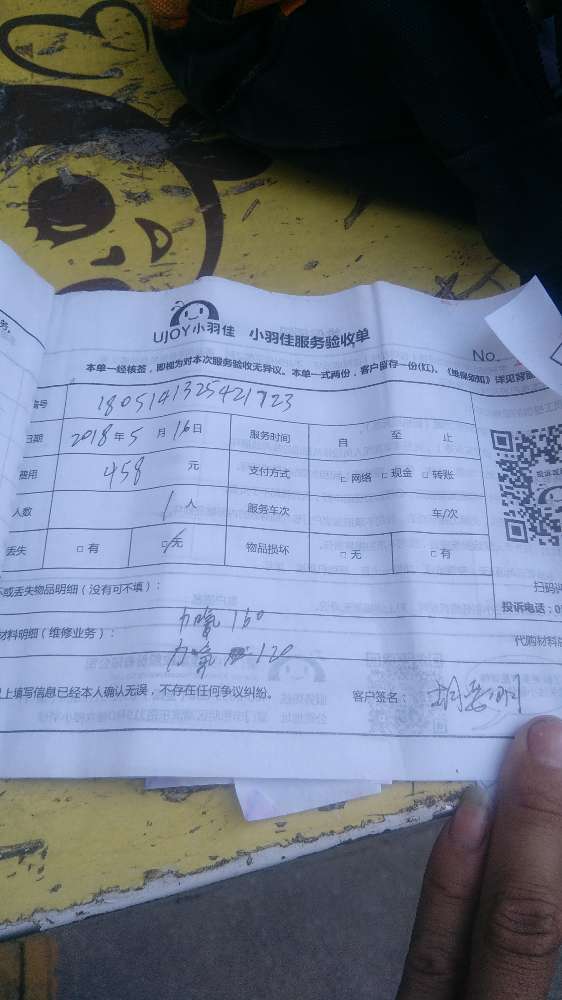 UJOY小羽佳 小羽佳服务验收单
No.
本单一经核签，即视为对本次服务验收无异议。本单一式两份，客户留存一份(红)。《维保须知》详见背面
编号 1805141325421723
日期 2018年5月16日 服务时间 自 至 止
费用 458 元 支付方式 □网络 □现金 □转账
人数 1人 服务车次 车/次
丢失 □有 □无 物品损坏 □无 □有
扫码
坏或丢失物品明细（没有可不填）：
投诉电话：05
加氟160
材料明细（维修业务）：
加氟 120
代购材料
以上填写信息已经本人确认无误，不存在任何争议纠纷。 客户签名：